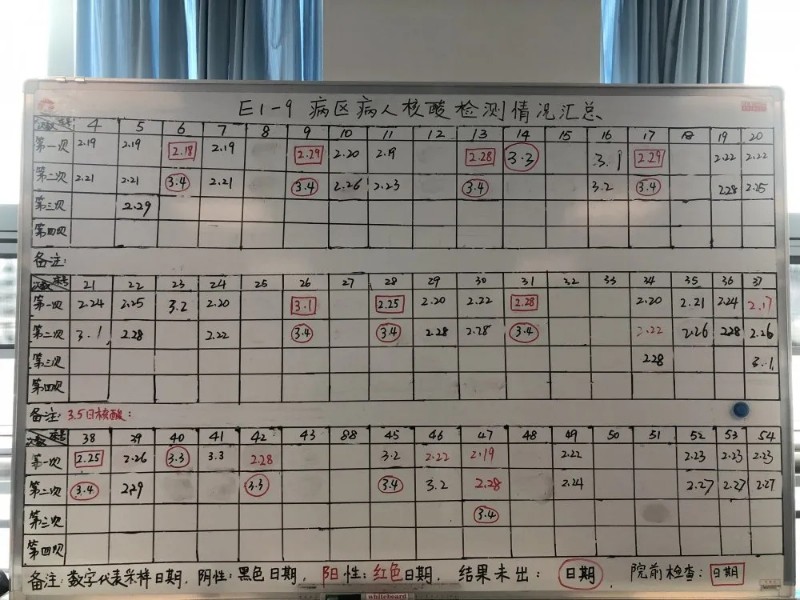 E1-9 病区病人核酸检测情况汇总
4 5 6 7 8 9 10 11 12 13 14 15 16 17 18 19 20
第一次 2.19 2.19 2.18 2.19 2.29 2.20 2.19 2.28 3.3 3.1 2.29 2.22 2.22
第二次 2.21 2.21 3.4 2.21 3.4 2.26 2.23 3.4 3.2 3.4 2.28 2.25
第三次 2.29
第四次
备注:
21 22 23 24 25 26 27 28 29 30 31 32 33 34 35 36 37
第一次 2.24 2.25 3.2 2.20 3.1 2.25 2.20 2.22 2.28 2.20 2.21 2.24 2.17
第二次 3.1 2.28 2.22 3.4 3.4 2.28 2.28 3.4 2.22 2.26 2.28 2.26
第三次 2.28 3.1
第四次
备注: 3.5日核酸:
38 39 40 41 42 43 88 45 46 47 48 49 50 51 52 53 54
第一次 2.25 2.26 3.3 3.3 2.28 3.2 2.22 2.19 2.22 2.23 2.23 2.23
第二次 3.4 2.29 3.3 3.4 3.2 2.28 2.24 2.27 2.27 2.27
第三次 3.4
第四次
备注:数字代表采样日期, 阴性:黑色日期, 阳性:红色日期, 结果未出: 日期 院前检查: 日期
whiteboard